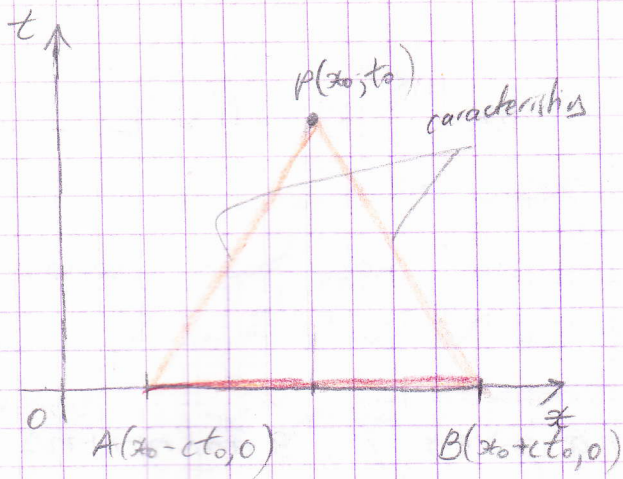 t
P(x₀, t₀)
caracteristics
0
x
A(x₀-ct₀, 0)
B(x₀+ct₀, 0)